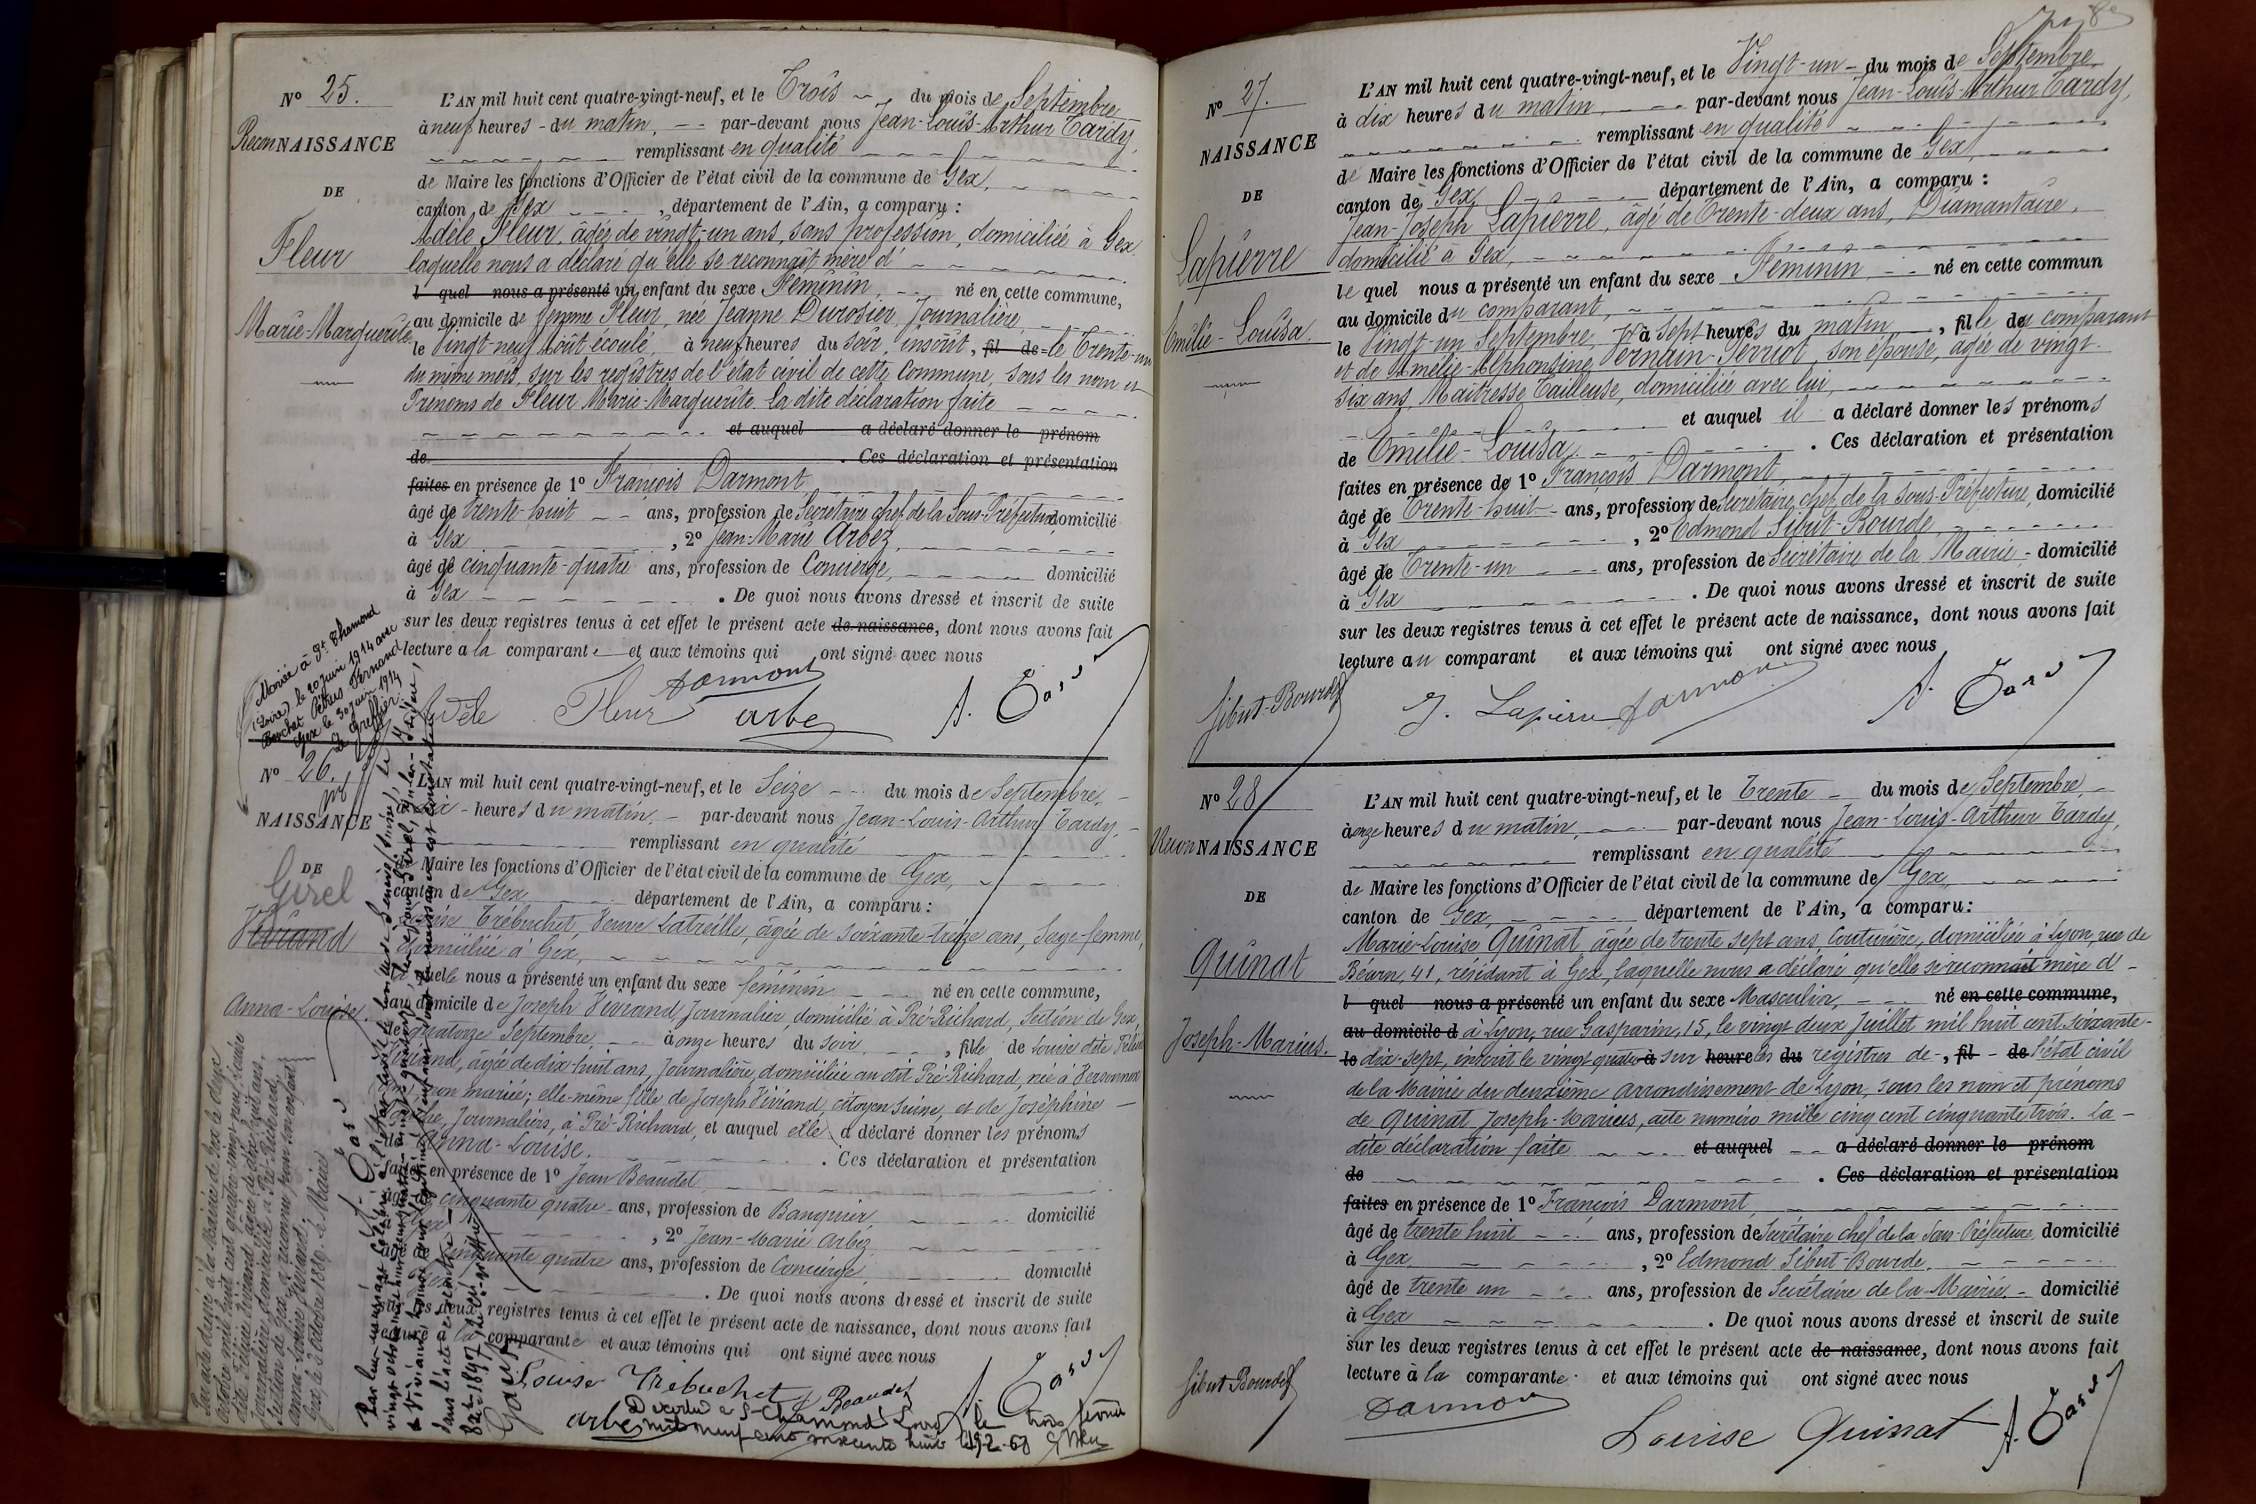 N° 25.
ReconNAISSANCE
DE
Fleur
Marie-Marguerite
L'AN mil huit cent quatre-vingt-neuf, et le Trois du mois de Septembre
à neuf heures du matin, par-devant nous Jean-Louis-Arthur Tardy,
remplissant en qualité
de Maire les fonctions d'Officier de l'état civil de la commune de Gex,
canton de Gex, département de l'Ain, a comparu :
Adèle Fleur, âgée de vingt-un ans, sans profession, domiciliée à Gex
laquelle nous a déclaré qu'elle se reconnaît mère d'
l quel nous a présenté un enfant du sexe Féminin, né en cette commune,
au domicile de femme Fleur, née Jeanne Durosier, Journalière
le Vingt-neuf Août écoulé, à neuf heures du soir, inscrit, fil de le Trente-un
du même mois, sur les registres de l'état civil de cette Commune, sous les nom et
Prénoms de Fleur Marie-Marguerite. La dite déclaration faite
et auquel a déclaré donner le prénom
de . Ces déclaration et présentation
faites en présence de 1° François Darmont
âgé de trente-huit ans, profession de Secrétaire chef de la Sous-Préfecture, domicilié
à Gex, 2° Jean-Marie Arbez,
âgé de cinquante-quatre ans, profession de Concierge, domicilié
à Gex. De quoi nous avons dressé et inscrit de suite
sur les deux registres tenus à cet effet le présent acte de naissance, dont nous avons fait
lecture a la comparante et aux témoins qui ont signé avec nous
Mariée à St Chamond
(Loire) le 20 juin 1914 avec
Petrus Fernand
Gex le 30 juin 1914
Le Greffier
Adèle Fleur Darmont arbez A. Tardy
N° 26.
NAISSANCE
DE
Girel
Viviand
Anna-Louise.
L'AN mil huit cent quatre-vingt-neuf, et le Seize du mois de Septembre,
heures du matin, par-devant nous Jean-Louis-Arthur Tardy,
remplissant en qualité
de Maire les fonctions d'Officier de l'état civil de la commune de Gex,
canton de Gex département de l'Ain, a comparu :
Trébuchet, Veuve Latreille, âgée de soixante-treize ans, Sage-femme,
domiciliée à Gex,
la quelle nous a présenté un enfant du sexe féminin né en cette commune,
au domicile de Joseph Viviand, Journalier, domicilié à Pré-Richard, Section de Gex,
le quatorze Septembre, à onze heures du soir, fille de Louise dite
Viviand, âgée de dix-huit ans, Journalière, domiciliée au dit Pré-Richard, née à
non mariée; elle-même fille de Joseph Viviand, citoyen Suisse, et de Joséphine
Journaliers, à Pré-Richard, et auquel elle a déclaré donner les prénoms
de Anna-Louise. Ces déclaration et présentation
faites en présence de 1° Jean Beaudet
âgé de cinquante quatre ans, profession de Banquier, domicilié
à Gex, 2° Jean-Marie Arbez
âgé de cinquante quatre ans, profession de Concierge, domicilié
. De quoi nous avons dressé et inscrit de suite
sur les deux registres tenus à cet effet le présent acte de naissance, dont nous avons fait
lecture à la comparante et aux témoins qui ont signé avec nous
Louise Trébuchet J. Beaudet A. Tardy
arbez
Décédée à St-Chamond Loire le trois février
mil neuf cent soixante huit
Par acte dressé à la Mairie de Gex le deux
octobre mil huit cent quatre-vingt-neuf, Louise
dite Viviand, âgée de dix-huit ans,
journalière, domiciliée à Pré-Richard,
Section de Gex, a reconnu pour son enfant
Anna-Louise Viviand.
Gex, le 2 Octobre 1889. Le Maire
A. Tardy
N° 27.
NAISSANCE
DE
Lapierre
Emilie-Louisa.
L'AN mil huit cent quatre-vingt-neuf, et le Vingt-un du mois de Septembre
à dix heures du matin, par-devant nous Jean-Louis-Arthur Tardy,
remplissant en qualité
de Maire les fonctions d'Officier de l'état civil de la commune de Gex,
canton de Gex, département de l'Ain, a comparu :
Jean-Joseph Lapierre, âgé de Trente-deux ans, Diamantaire,
domicilié à Gex,
le quel nous a présenté un enfant du sexe Féminin, né en cette commun
au domicile du comparant,
le Vingt-un Septembre, à sept heures du matin, fille du comparant
et de Amélie-Alphonsine son épouse, âgée de vingt-
six ans, Maîtresse Tailleuse, domiciliée avec lui,
et auquel il a déclaré donner les prénoms
de Emilie-Louisa. Ces déclaration et présentation
faites en présence de 1° François Darmont
âgé de Trente-huit ans, profession de Secrétaire chef de la Sous-Préfecture, domicilié
à Gex, 2° Edmond Sibut-Bourde,
âgé de Trente-un ans, profession de Secrétaire de la Mairie, domicilié
à Gex. De quoi nous avons dressé et inscrit de suite
sur les deux registres tenus à cet effet le présent acte de naissance, dont nous avons fait
lecture au comparant et aux témoins qui ont signé avec nous
Sibut-Bourde J. Lapierre Darmont A. Tardy
N° 28
ReconNAISSANCE
DE
Quinat
Joseph-Marius.
L'AN mil huit cent quatre-vingt-neuf, et le Trente du mois de Septembre,
à onze heures du matin, par-devant nous Jean-Louis-Arthur Tardy,
remplissant en qualité
de Maire les fonctions d'Officier de l'état civil de la commune de Gex,
canton de Gex, département de l'Ain, a comparu :
Marie-Louise Quinat, âgée de trente sept ans, Couturière, domiciliée à Lyon, rue de
Béarn, 41, résidant à Gex, laquelle nous a déclaré qu'elle se reconnait mère d'
l quel nous a présenté un enfant du sexe Masculin, né en cette commune,
au domicile d à Lyon, rue Gasparin, 15, le vingt deux Juillet mil huit cent soixante-
le dix-sept, inscrit le vingt quatre à sur heure les du registres de, fil de l'état civil
de la Mairie du deuxième arrondissement de Lyon, sous les nom et prénoms
de Quinat Joseph-Marius, acte numéro mille cinq cent cinquante trois. La
dite déclaration faite et auquel a déclaré donner le prénom
de . Ces déclaration et présentation
faites en présence de 1° François Darmont,
âgé de trente huit ans, profession de Secrétaire chef de la Sous-Préfecture, domicilié
à Gex, 2° Edmond Sibut-Bourde,
âgé de trente un ans, profession de Secrétaire de la Mairie, domicilié
à Gex. De quoi nous avons dressé et inscrit de suite
sur les deux registres tenus à cet effet le présent acte de naissance, dont nous avons fait
lecture à la comparante et aux témoins qui ont signé avec nous
Sibut Bourde Darmont Louise Quinat A. Tardy